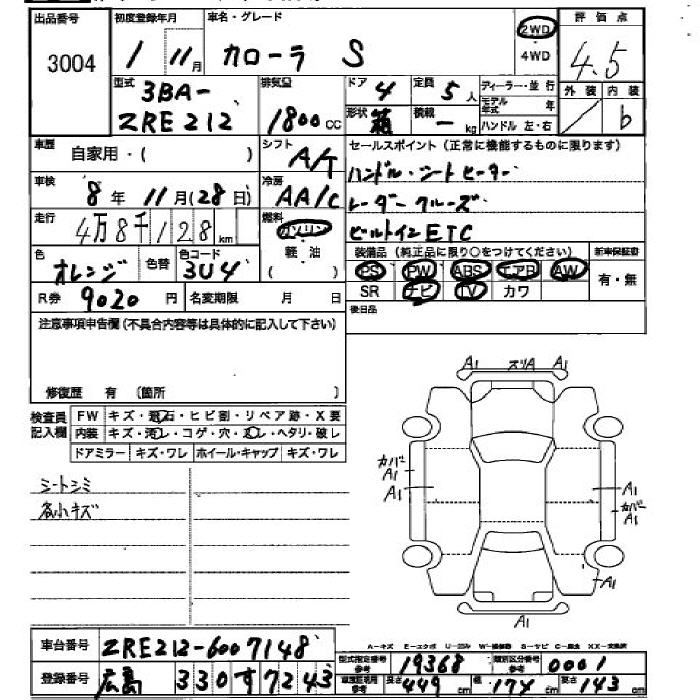 出品番号 初度登録年月 車名・グレード 評価点
3004 1 11月 カローラ S 2WD 4WD 4.5
型式 排気量 ドア 4 定員 5人 ディーラー・並行 外装 内装
3BA- 形状 箱 積載 ー kg モデル年式 年 b
ZRE212 1800cc ハンドル 左・右
車歴 自家用・( ) シフト A/T セールスポイント（正常に機能するものに限ります）
車検 8年 11月(28日) 冷房 AA/C ハンドル・シートヒーター
走行 4万8千128km 燃料 ガソリン レーダークルーズ
軽油 ビルトインETC
色 オレンジ 色替 色コード 3U4 ( ) 装備品（純正品に限り○をつけてください） 新車保証書
PS PW ABS エアB AW 有・無
R券 9020円 名変期限 月 日 SR ナビ TV カワ
注意事項申告欄（不具合内容等は具体的に記入して下さい） 後日品
修復歴 有 〔箇所 〕
検査員記入欄 FW キズ・飛石・ヒビ割・リペア跡・X要
内装 キズ・汚レ・コゲ・穴・スレ・ヘタリ・破レ
ドアミラー キズ・ワレ ホイール・キャップ キズ・ワレ
シートシミ
各小キズ
A1 スリA A1
カバー A1
A1
A1
カバー A1
A1
A1
A-キズ E-エクボ
車台番号 ZRE212-6007148
型式指定番号 参考 19368 類別区分番号 参考 0001
登録番号 広島 330す7243
長さ 449cm 幅 174cm 高さ 143cm